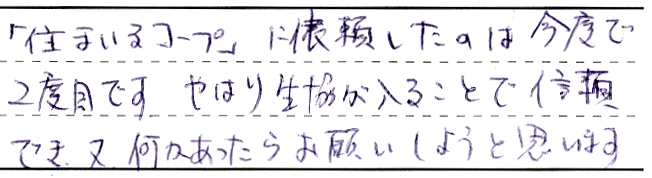 「住まいるコープ」に依頼したのは今度で
2度目です やはり生協が入ることで信頼
でき 又 何かあったらお願いしようと思います